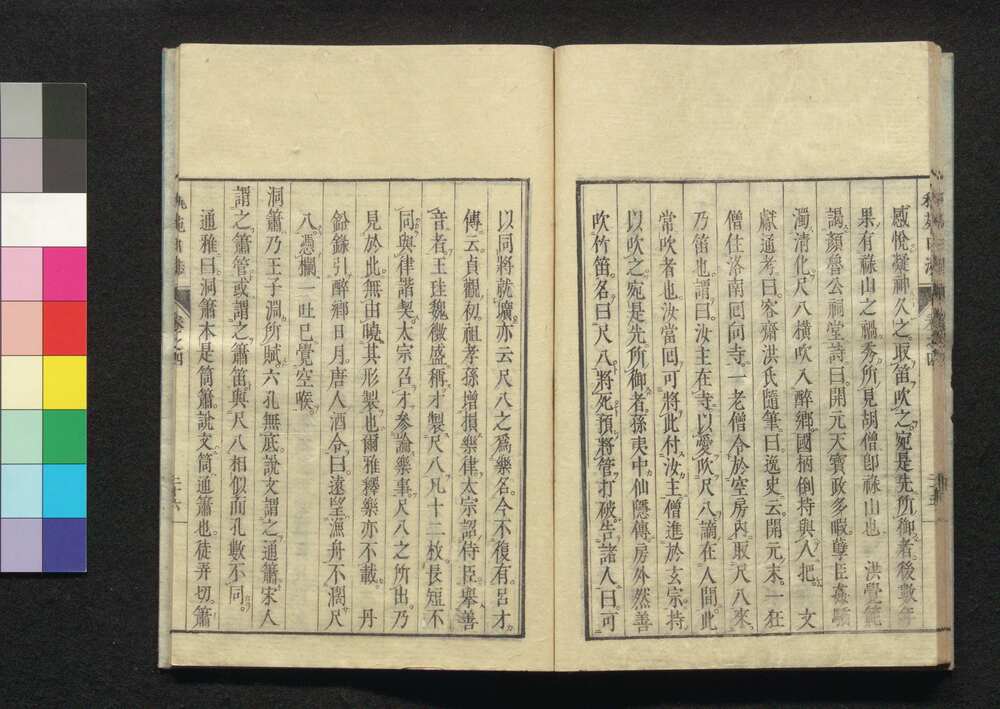 感悅凝神久之取笛吹之宛是先所御者後數年
果有祿山之禍秀所見胡僧卽祿山也　洪覺範
謁顏魯公祠堂詩曰開元天寶政多暇孽臣
濁清化尺八橫吹入醉鄉國柄倒持與人把　文
獻通考曰容齋洪氏隨筆曰逸史云開元末一狂
僧住洛南回向寺一老僧令於空房內取尺八來
乃笛也謂曰汝主在寺以愛吹尺八謫在人間此
常吹者也汝當回可將此付汝主僧進於玄宗持
以吹之宛是先所御者孫夷中仙隱傳房外然善
吹竹笛名曰尺八將死預將管打破告諸人曰可
以同將就壙亦云尺八之爲樂名今不復有呂才
傳云貞觀初祖孝孫增損樂律太宗詔侍臣舉善
音者王珪魏徵盛稱才製尺八凡十二枚長短不
同與律諧契太宗召才參論樂事尺八之所出乃
見於此無由曉其形製也爾雅釋樂亦不載　丹
鉛錄引醉鄉日月唐人酒令曰遠望漁舟不濶尺
八憑欄一吐已覺空喉
洞簫乃王子淵所賦六孔無底說文謂之通簫宋人
謂之簫管或謂之簫笛與尺八相似而孔數不同
通雅曰洞簫本是筒簫說文筒通簫也徒弄切簫
卷之四
二十六